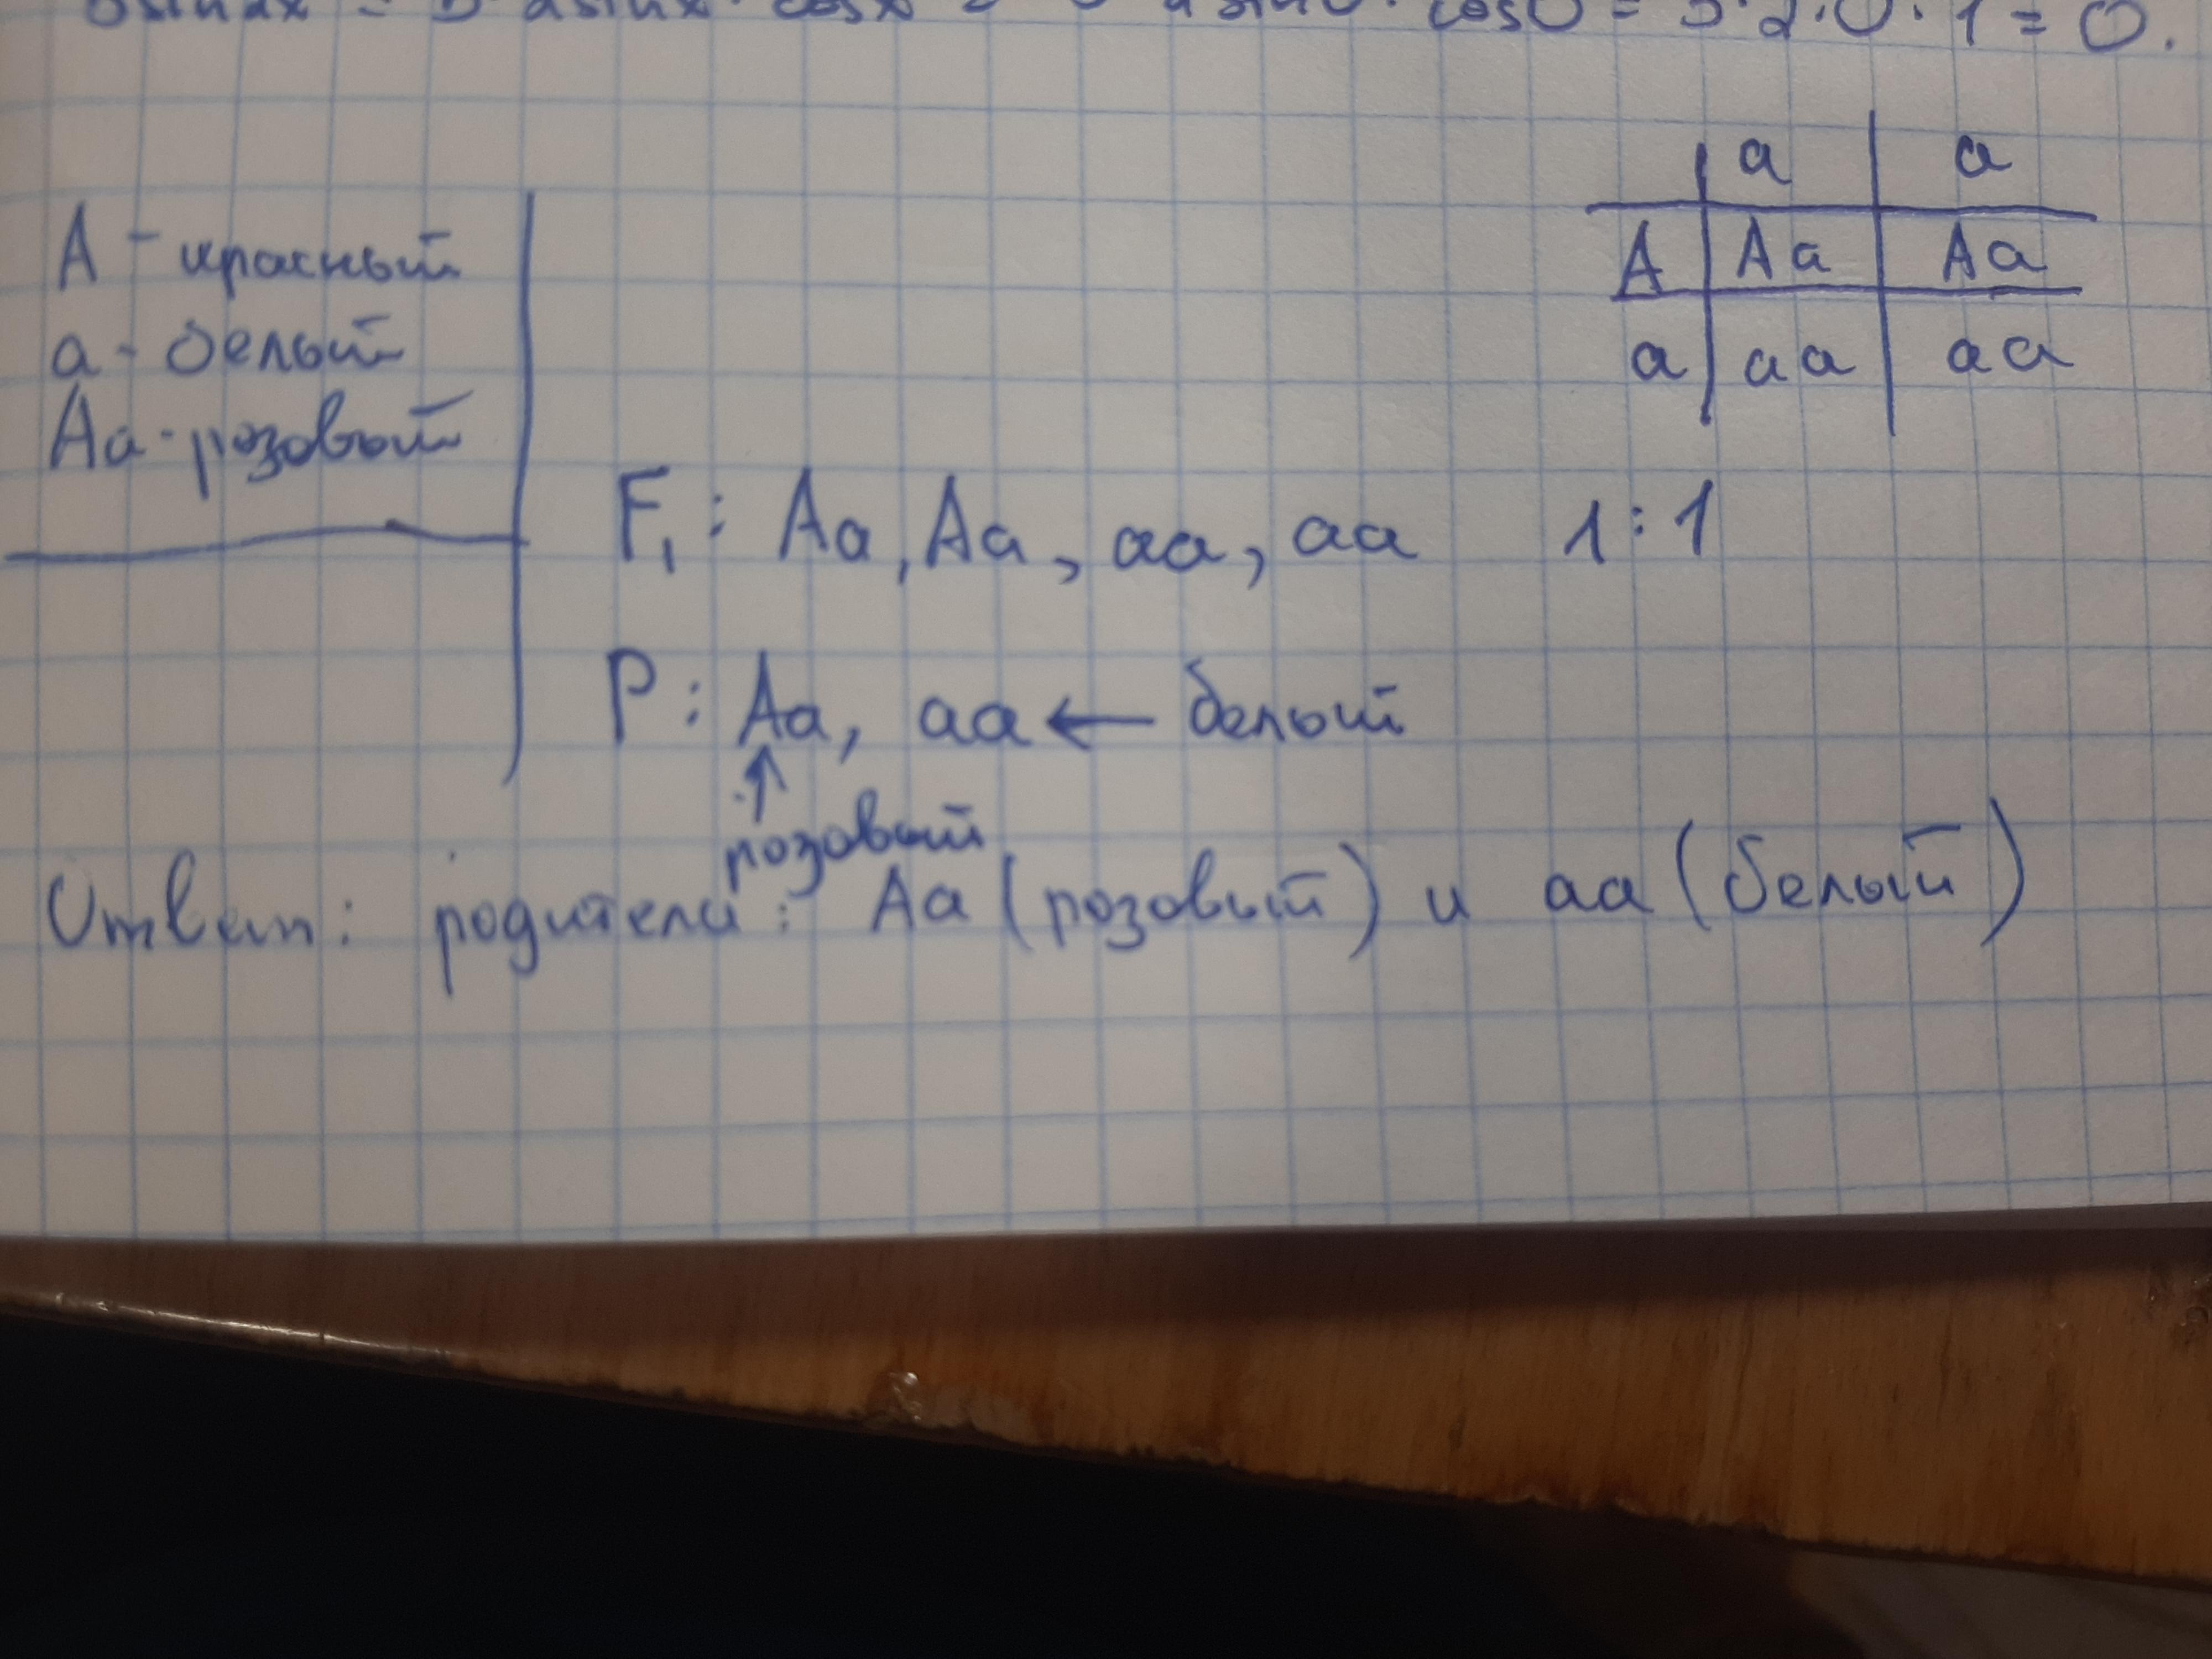 cos0 = 3·2·0·1 = 0.
a a
A Aa Aa
a aa aa
A - красный
a - белый
Aa - розовый
F₁: Aa, Aa, aa, aa 1:1
P: Aa, aa ← белый
↑
розовый
Ответ: родители: Aa (розовый) и aa (белый)